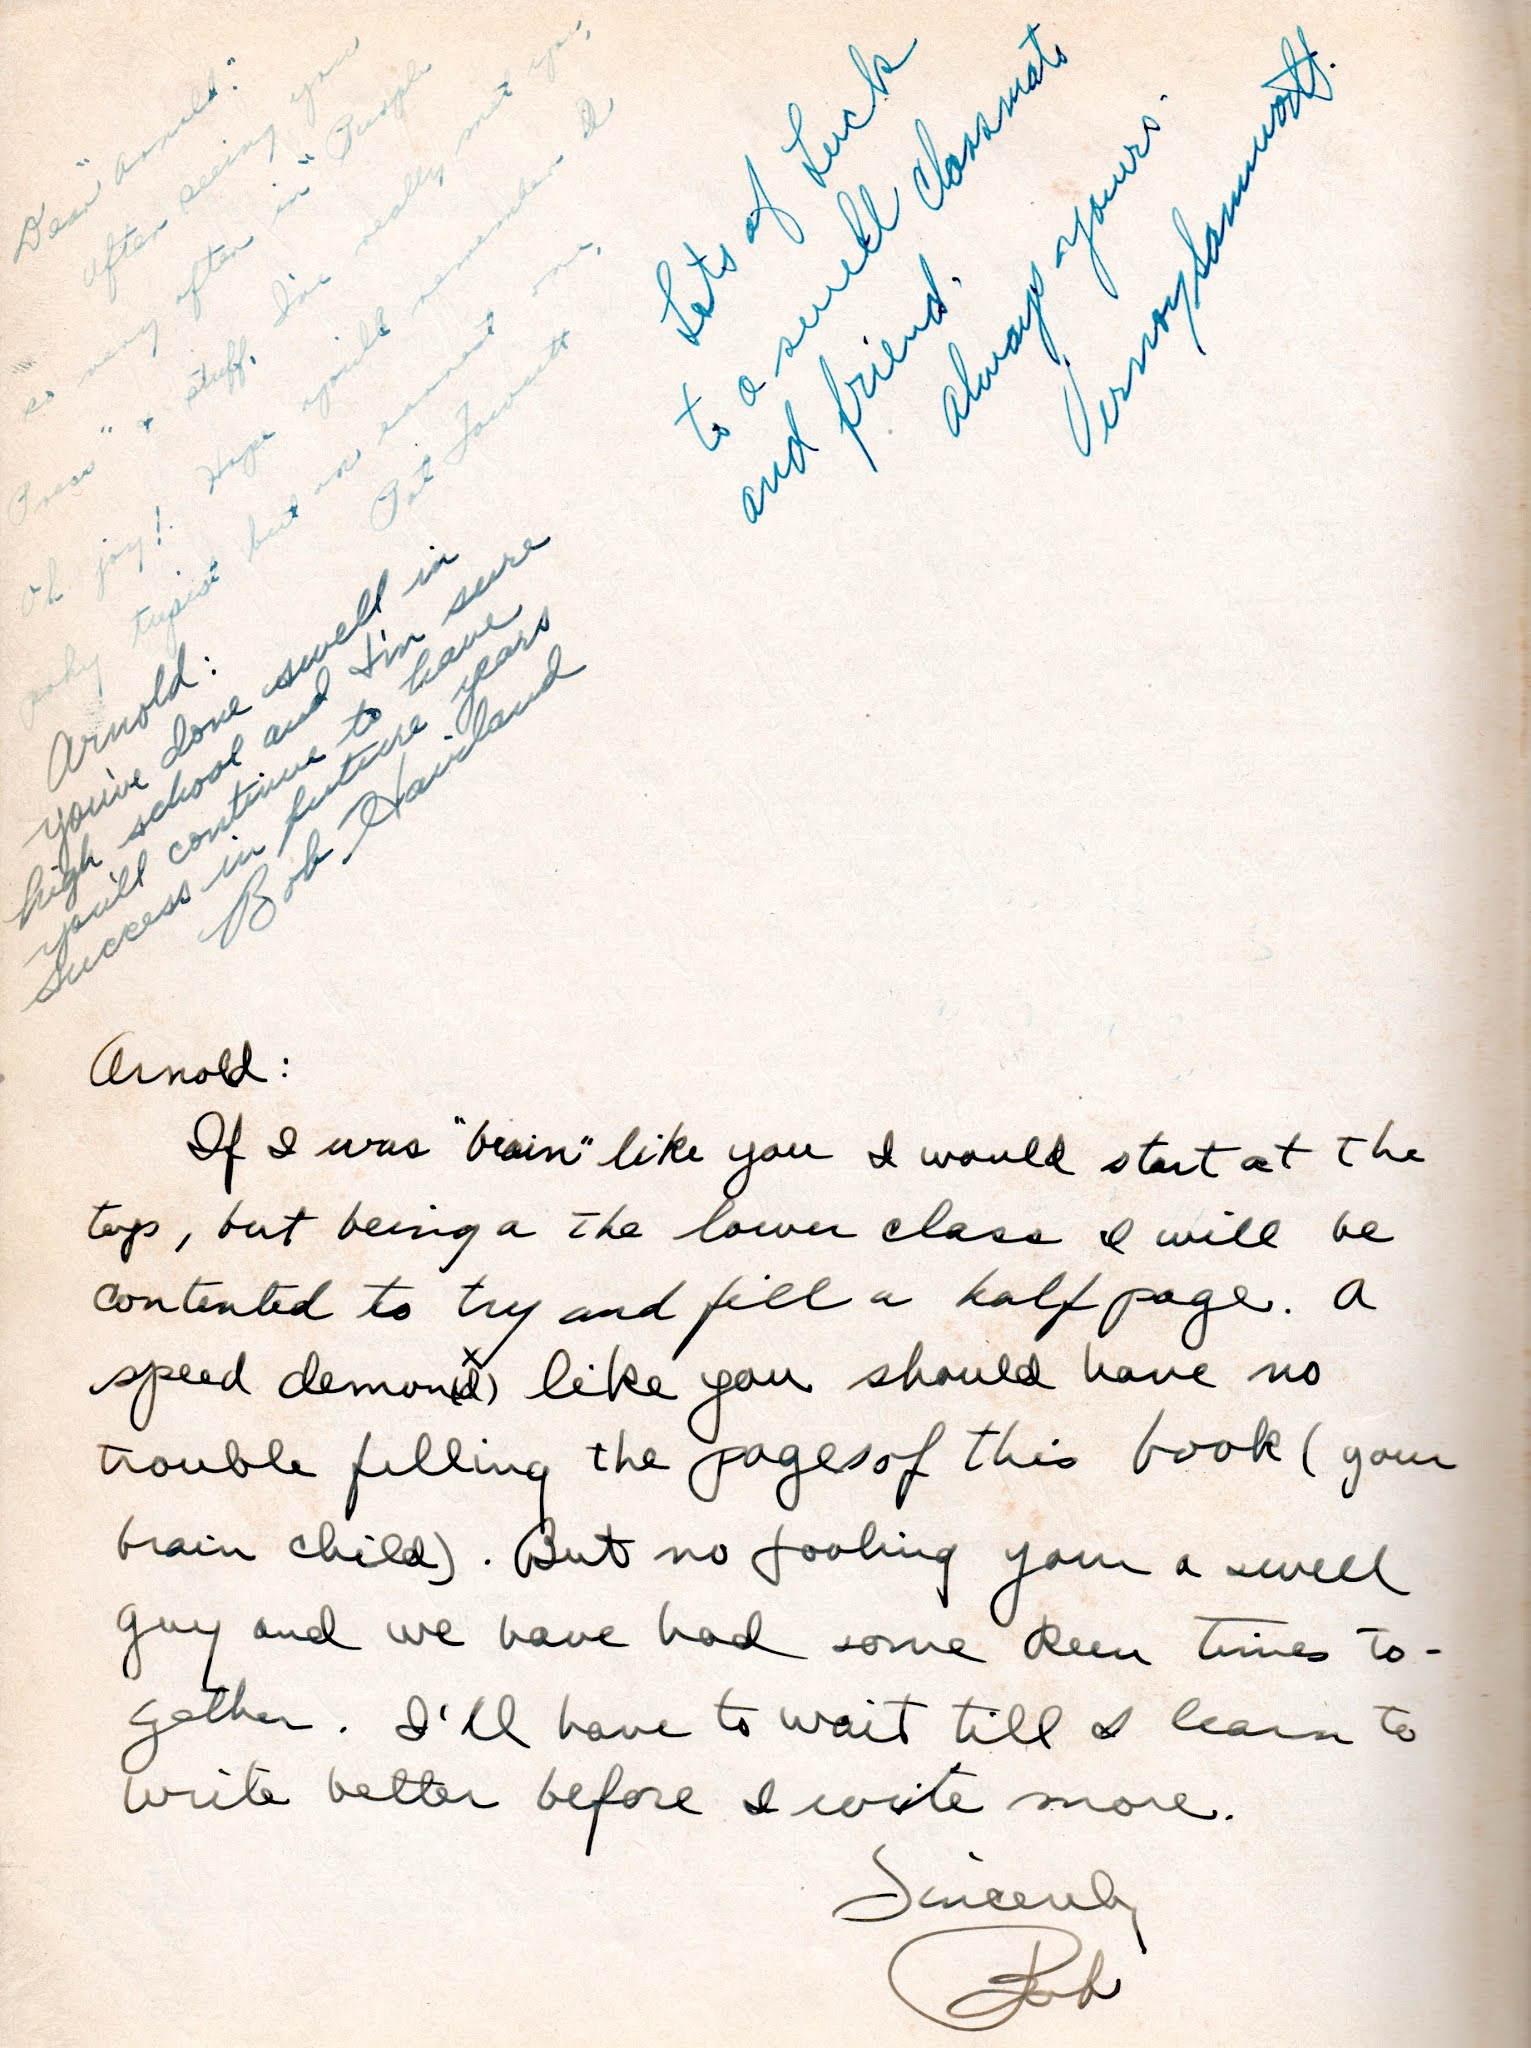 Dear "Arnold":
After seeing you
so very often in "Purple
Press" & stuff, I've really met you,
Oh joy! Hope you'll remember I
typist but an
Pat
Lots of Luck
to a swell classmate
and friend.
always yours.
Arnold:
you've done swell in
high school and I'm sure
you'll continue to have
success in future years
Bob Haviland
Arnold:
If I was "brain" like you I would start at the
top, but being a the lower class I will be
contented to try and fill a half page. A
speed demon(s) like you should have no
trouble filling the pages of this book (your
brain child). But no fooling your a swell
guy and we have had some keen times to-
gether. I'll have to wait till I learn to
write better before I write more.
Sincerely
Bob